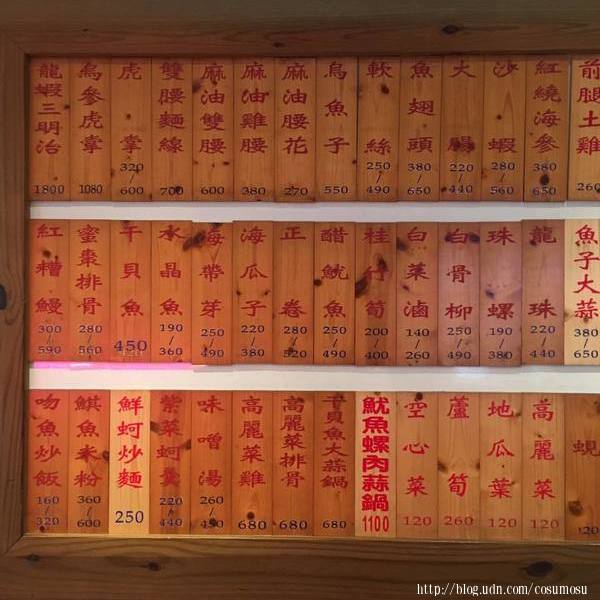 龍蝦三明治 1800
烏參虎掌 1080
虎掌 320/600
雙腰麵線 700
麻油雙腰 600
麻油雞腰 380
麻油腰花 270
烏魚子 550
軟絲 250/490
魚翅頭 380/650
大腸 220/440
沙蝦 280/560
紅繞海參 380/650
前腿土雞 260
紅糟鰻 300/590
蜜棗排骨 280/560
干貝魚 450
水晶魚 190/360
海帶芽 250/490
海瓜子 220/380
正卷 280/520
醋魷魚 250/490
桂竹筍 200/400
白菜滷 140/260
白骨柳 250/490
珠螺 190/380
龍珠 220/440
魚子大蒜 380/650
吻魚炒飯 160/320
鯕魚米粉 360/600
鮮蚵炒麵 250
紫菜蚵羹 220/440
味噌湯 260/450
高麗菜雞 680
高麗菜排骨 680
干貝魚大蒜鍋 680
魷魚螺肉蒜鍋 1100
空心菜 120
蘆筍 260
地瓜葉 120
高麗菜 120
蜆
http://blog.udn.com/cosumosu